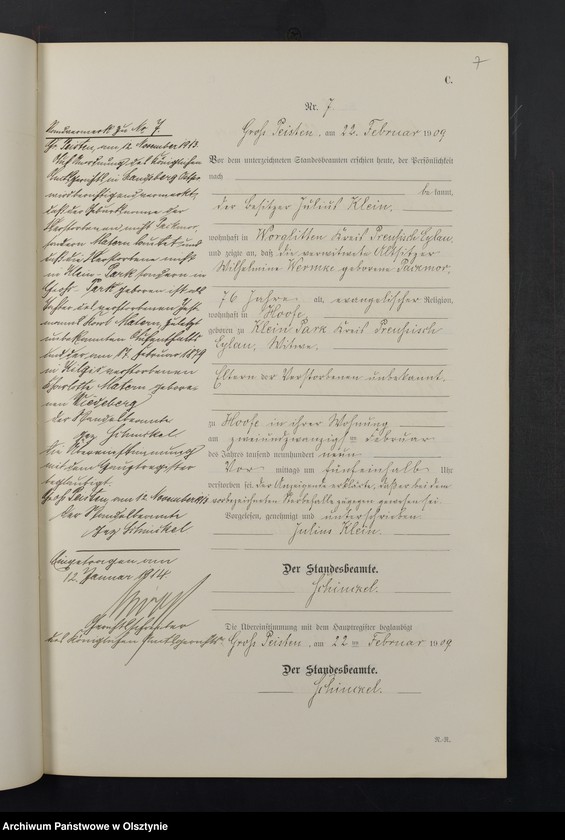 7
C.
Nr. 7
Groß Peisten, am 22. Februar 1909
Vor dem unterzeichneten Standesbeamten erschien heute, der Persönlichkeit
nach
bekannt,
der Besitzer Julius Klein,
wohnhaft in Worglitten Kreis Preußisch Eylau,
und zeigte an, daß die verwitwete Altsitzer
Wilhelmine Wermke geborene
76 Jahre alt, evangelischer Religion,
wohnhaft in Hoofe,
geboren zu Klein Park Kreis Preußisch
Eylau, Witwe.
Eltern der Verstorbenen unbekannt.
zu Hoofe in ihrer Wohnung
am zweiundzwanzigsten Februar
des Jahres tausend neunhundert neun
Vormittags um fünfeinhalb Uhr
verstorben sei. Der Anzeigende erklärte, daß er bei dem
vorbezeichneten Sterbefalle zugegen gewesen sei.
Vorgelesen, genehmigt und unterschrieben
Julius Klein.
Der Standesbeamte.
Schinckel.
Die Übereinstimmung mit dem Hauptregister beglaubigt
Groß Peisten, am 22ten Februar 1909
Der Standesbeamte.
Schinckel.
N.-R.
Randvermerk zu No. 7.
Gr. Peisten, am 12. November 1913.
Auf Anordnung des Königlichen
Amtsgerichts in Landsberg Ostpr.
wird berichtigend vermerkt,
daß der Geburtsname der
Verstorbenen nicht
sondern Matern lautet und
daß die Verstorbene nicht
in Klein Park sondern in
Groß Park geboren ist als
Tochter des verstorbenen
Matern, zuletzt
unbekannten Aufenthalts
und der am 17. Februar 1879
in verstorbenen
Charlotte Matern geborenen
Der Standesbeamte
gez. Schinckel
Die Übereinstimmung
mit dem Hauptregister
beglaubigt.
Groß Peisten, am 12. November 1913
Der Standesbeamte
gez. Schinckel
Eingetragen am
12. Januar 1914
Gerichtsschreiber
des Königlichen Amtsgerichts
Archiwum Państwowe w Olsztynie